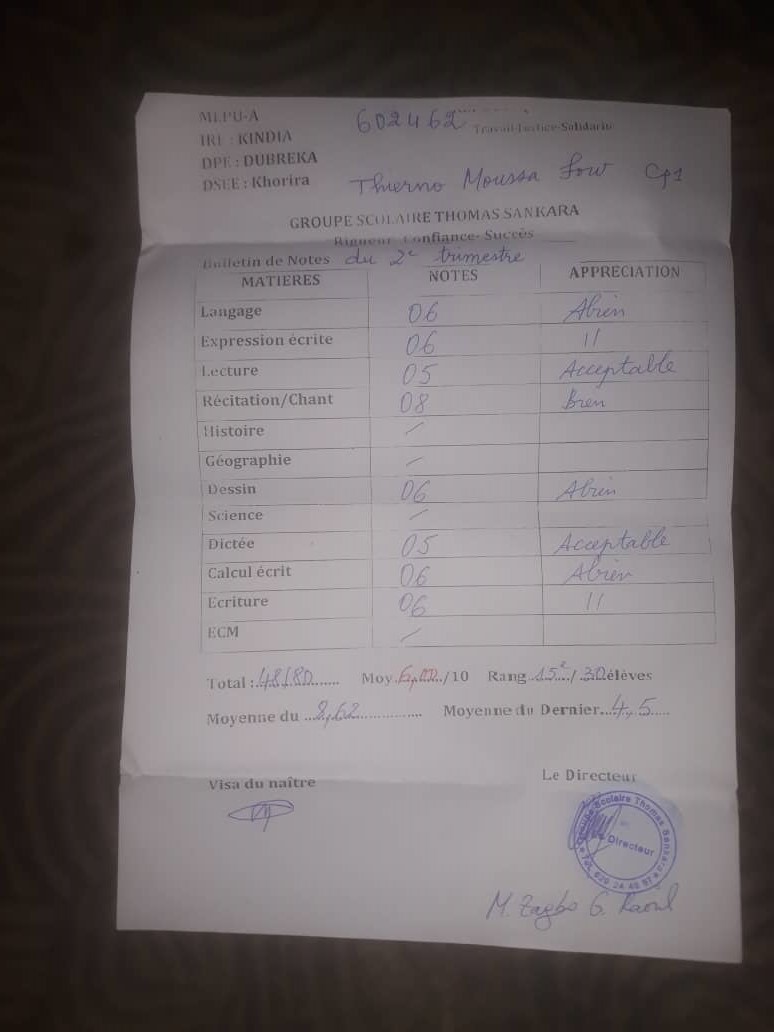 MEPU-A
602462
Travail-Justice-Solidarité
IRE : KINDIA
DPE : DUBREKA
DSEE : Khorira
Thierno Moussa Sow CP1
GROUPE SCOLAIRE THOMAS SANKARA
Rigueur- Confiance- Succès
Bulletin de Notes du 2e trimestre
MATIERES NOTES APPRECIATION
Langage 06 Abien
Expression écrite 06 //
Lecture 05 Acceptable
Récitation/Chant 08 Bien
Histoire /
Géographie /
Dessin 06 Abien
Science /
Dictée 05 Acceptable
Calcul écrit 06 Abien
Ecriture 06 //
ECM /
Total :.48/80....... Moy.6,00../10 Rang..15e../.30élèves
Moyenne du ...8,62................ Moyenne du Dernier...4,5.....
Visa du naître Le Directeur
Groupe Scolaire Thomas Sankara
Le Directeur
M. Zagbo G. Raoul